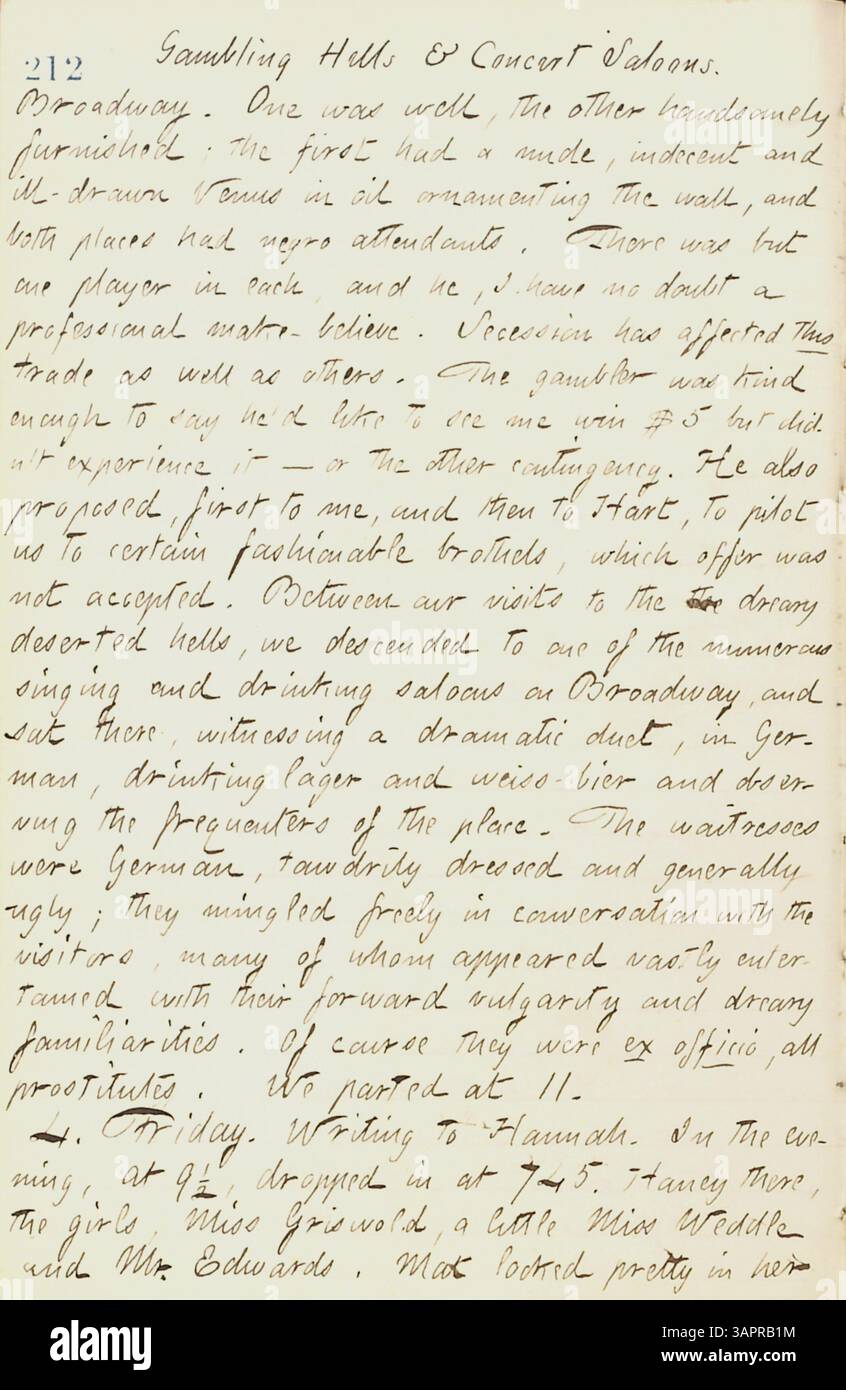 212
Gambling Hells & Concert Saloons.
Broadway. One was well, the other handsomely
furnished; the first had a nude, indecent and
ill-drawn Venus in oil ornamenting the wall, and
both places had negro attendants. There was but
one player in each, and he, I have no doubt a
professional make-believe. Secession has affected this
trade as well as others. The gambler was kind
enough to say he'd like to see me win $5 but did-
n't experience it — or the other contingency. He also
proposed, first to me, and then to Hart, to pilot
us to certain fashionable brothels, which offer was
not accepted. Between our visits to the the dreary
deserted hells, we descended to one of the numerous
singing and drinking saloons on Broadway, and
sat there, witnessing a dramatic duet, in Ger-
man, drinking lager and weiss-bier and obser-
ving the frequenters of the place. The waitresses
were German, tawdrily dressed and generally
ugly; they mingled freely in conversation with the
visitors, many of whom appeared vastly enter-
tained with their forward vulgarity and dreary
familiarities. Of course they were ex officio, all
prostitutes. We parted at 11.
4. Friday. Writing to Hannah. In the eve-
ning, at 9½, dropped in at 745. Haney there,
the girls, Miss Griswold, a little Miss Weddle
and Mr. Edwards. Mat looked pretty in her
alamy
Image ID: 3APRB1M
www.alamy.com